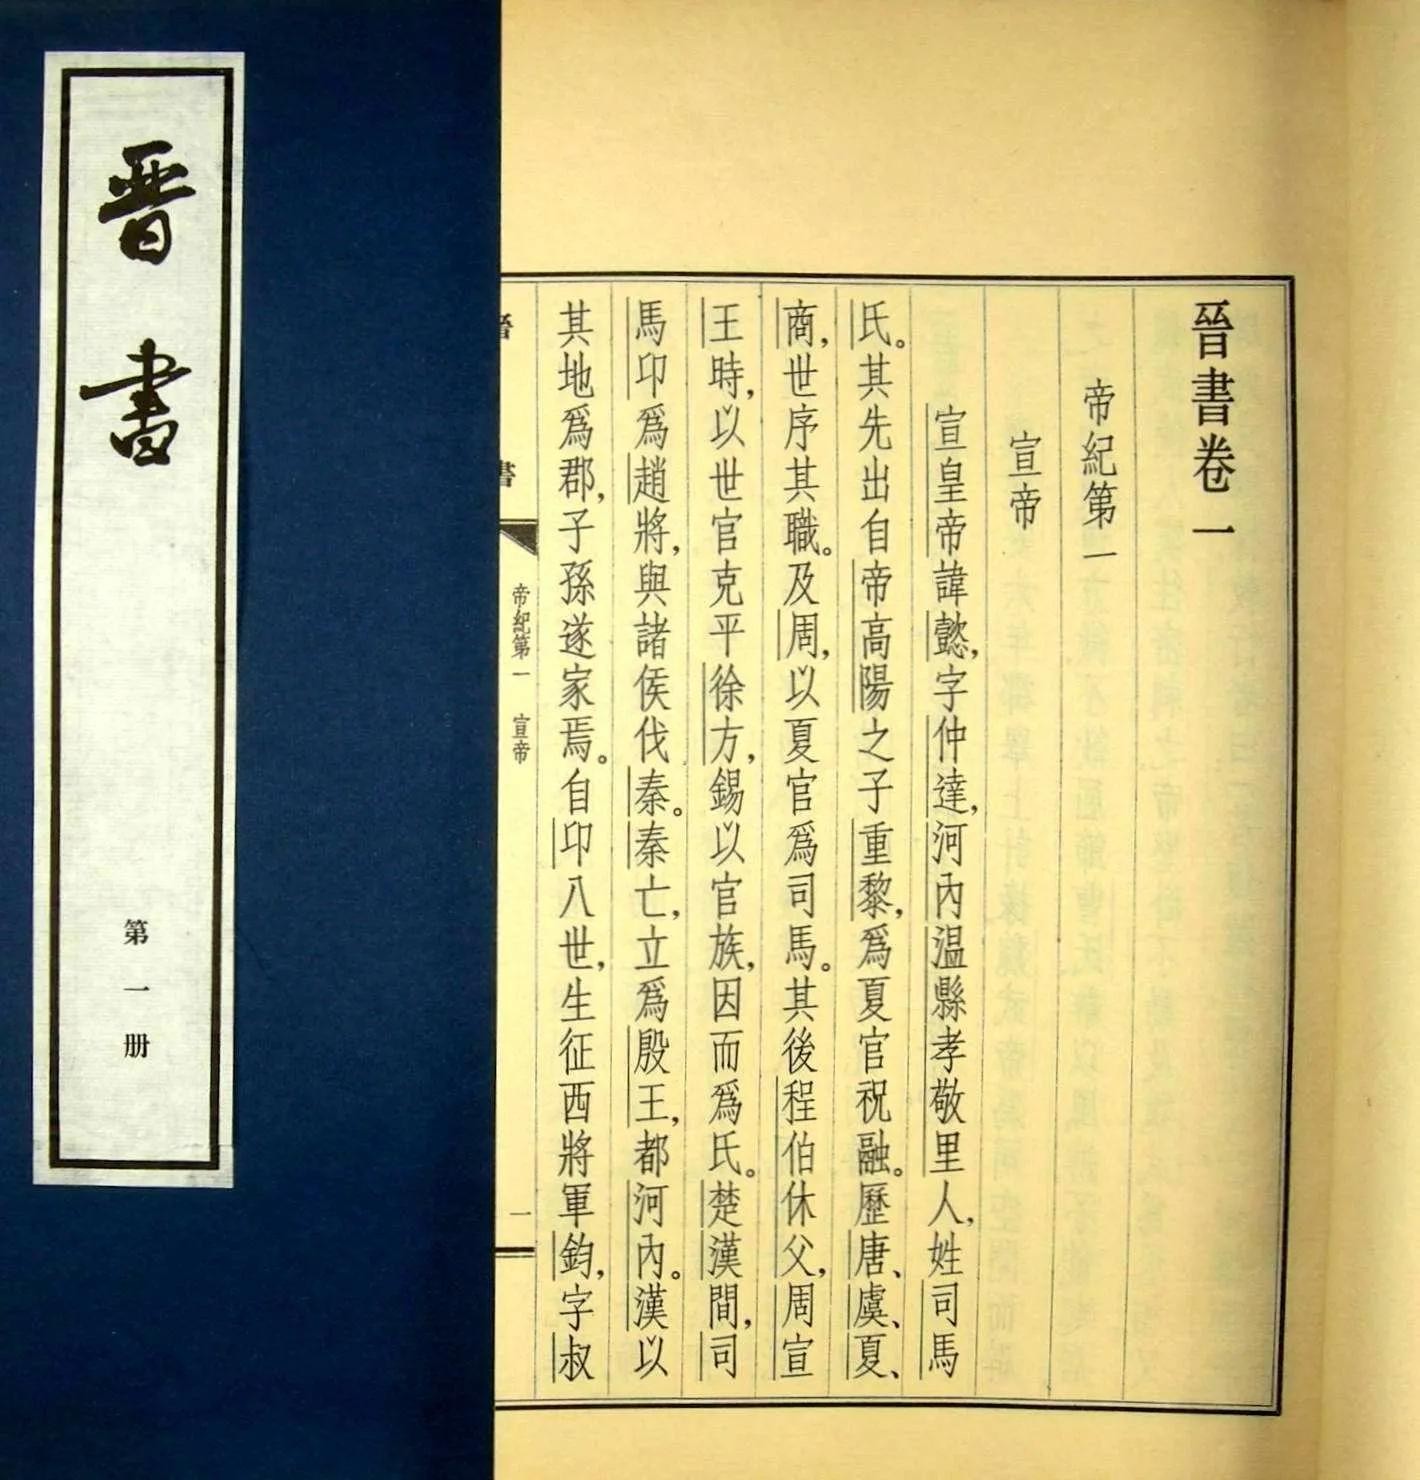 晉書
第一册
晉書卷一
帝紀第一
宣帝
宣皇帝諱懿，字仲達，河內溫縣孝敬里人，姓司馬
氏。其先出自帝高陽之子重黎，爲夏官祝融。歷唐、虞、夏、
商，世序其職。及周，以夏官爲司馬。其後程伯休父，周宣
王時，以世官克平徐方，錫以官族，因而爲氏。楚漢間，司
馬卬爲趙將，與諸侯伐秦。秦亡，立爲殷王，都河內。漢以
其地爲郡，子孫遂家焉。自卬八世，生征西將軍鈞，字叔
書
帝紀第一 宣帝
一